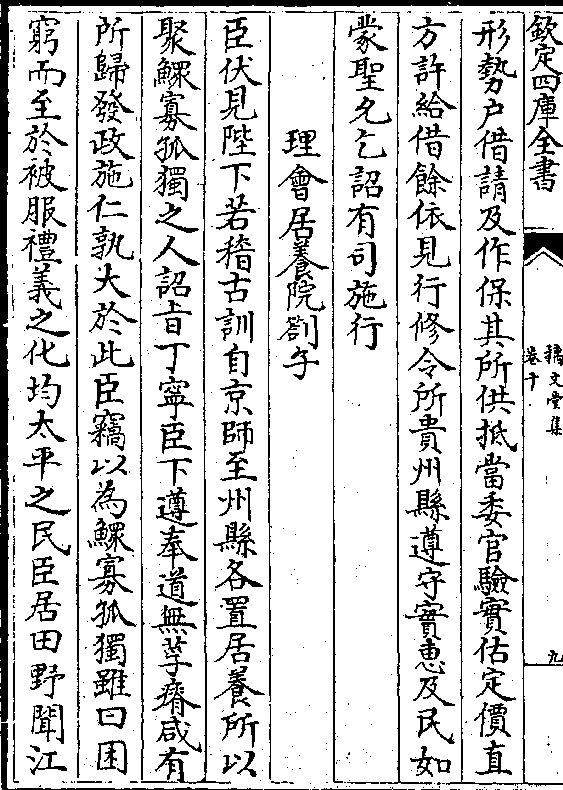 欽定四庫全書
摛文堂集
卷十
九
形勢户借請及作保其所供抵當委官驗實估定價直
方許給借餘依見行條令所貴州縣遵守實惠及民如
蒙聖允乞詔有司施行
理會居養院劄子
臣伏見陛下若稽古訓自京師至州縣各置居養所以
聚鰥寡孤獨之人詔旨丁寧臣下遵奉道無莩瘠咸有
所歸發政施仁孰大於此臣竊以為鰥寡孤獨雖曰困
窮而至於被服禮義之化均太平之民臣居田野聞江